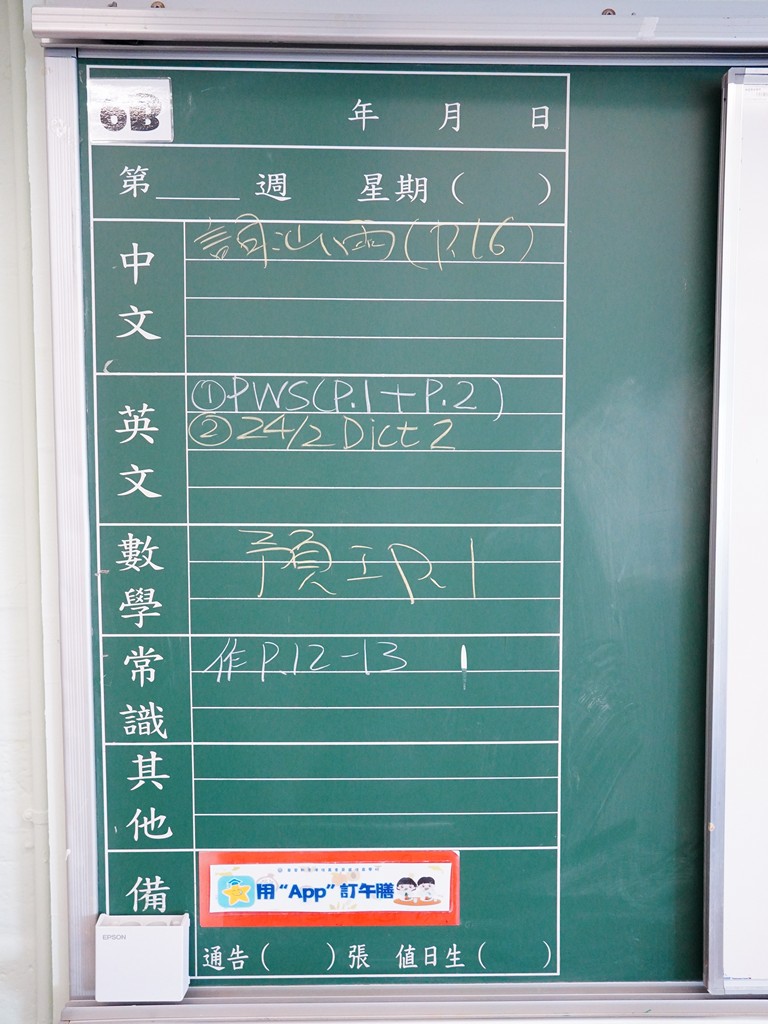 6B 年 月 日
第____週 星期( )
中文
詞汕雨(P.16)
英文
①PWS(P.1+P.2)
②24/2 Dict 2
數學
預工P.1
常識
作P.12-13
其他
備
用“App”訂午膳
通告( )張 值日生( )
EPSON